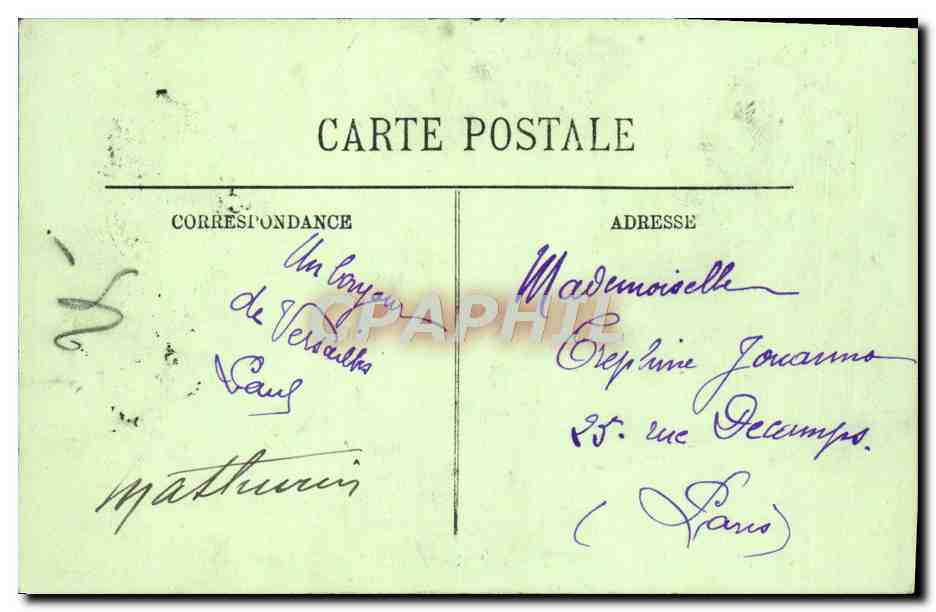 CARTE POSTALE
CORRESPONDANCE
Un bonjour
de Versailles
Paul
Mathurin
ADRESSE
Mademoiselle
Jouanno
25. rue Decamps.
(Paris)
CPAPHIL